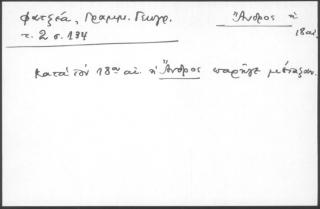 Φατζέα, Γραμμ. Γεωγρ.
Ἄνδρος ἡ
τ. 2 σ. 134
18 αἰ.
Κατὰ τὸν 18ον αἰ. ἡ Ἄνδρος παρῆγε μέταξαν.